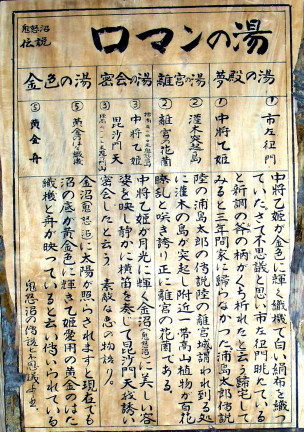 鬼怒沼
伝説
ロマンの湯
夢殿の湯
離宮の湯
密会の湯
金色の湯
① 市左衛門
① 中将乙姫
② 灌木突起島
② 離宮花園
③ 中将乙姫
③ 毘沙門天
⑤ 黄金のはた織機
⑤ 黄金舟
中将乙姫が金色に輝く織機で白い絹布を織っ
ていた、さて不思議と思い市左衛門眺めている
と新調の斧の柄がくち折れたと云う帰宅して
みると三年間家に帰らなかった浦島太郎伝説
陸の浦島太郎の伝説陸の離宮城謂われ到る処
に灌木の島が突起し附近一帯高山植物が百花
瞭乱と咲き誇り正に離宮の花園である。
中将乙姫が月光に輝く金沼(鬼怒沼)に美しい容
姿を映し静かに横笛を奏して毘沙門天を誘い
密会したと云う素敵な恋の物語り
金沼(鬼怒沼)に太陽が照らされますと現在でも
沼の底が黄金色に輝きて姫愛用の黄金のはた
織機と舟が映っていると云い伝いられている